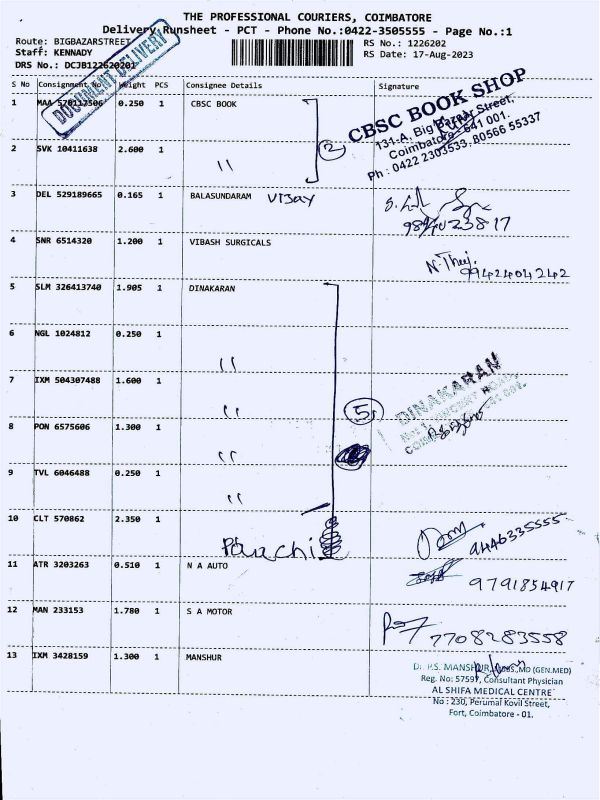 THE PROFESSIONAL COURIERS, COIMBATORE
Delivery Runsheet - PCT - Phone No.:0422-3505555 - Page No.:1
Route: BIGBAZARSTREET
RS No.: 1226202
Staff: KENNADY
RS Date: 17-Aug-2023
DRS No.: DCJB122620201
DOCUMENT DELIVERY
S No Consignment No Weight PCS Consignee Details Signature
1 MAA 0.250 1 CBSC BOOK
2
CBSC BOOK SHOP
131-A, Big Bazaar Street,
Coimbatore - 641 001.
Ph : 0422 2303533, 80566 55337
2 SVK 10411638 2.600 1 "
3 DEL 529189665 0.165 1 BALASUNDARAM Vijay
4 SNR 6514320 1.200 1 VIBASH SURGICALS
9942404242
5 SLM 326413740 1.905 1 DINAKARAN
6 NGL 1024812 0.250 1 "
7 IXM 504307488 1.600 1 "
5
DINAKARAN
8 PON 6575606 1.300 1 "
9 TVL 6046488 0.250 1 "
10 CLT 570862 2.350 1
9446335555
11 ATR 3203263 0.510 1 N A AUTO
9791854917
12 MAN 233153 1.780 1 S A MOTOR
7708283558
13 IXM 3428159 1.300 1 MANSHUR
Dr. P.S. MANSHUR, MBBS.,MD (GEN.MED)
Reg. No: 57597, Consultant Physician
AL SHIFA MEDICAL CENTRE
No : 230, Perumal Kovil Street,
Fort, Coimbatore - 01.